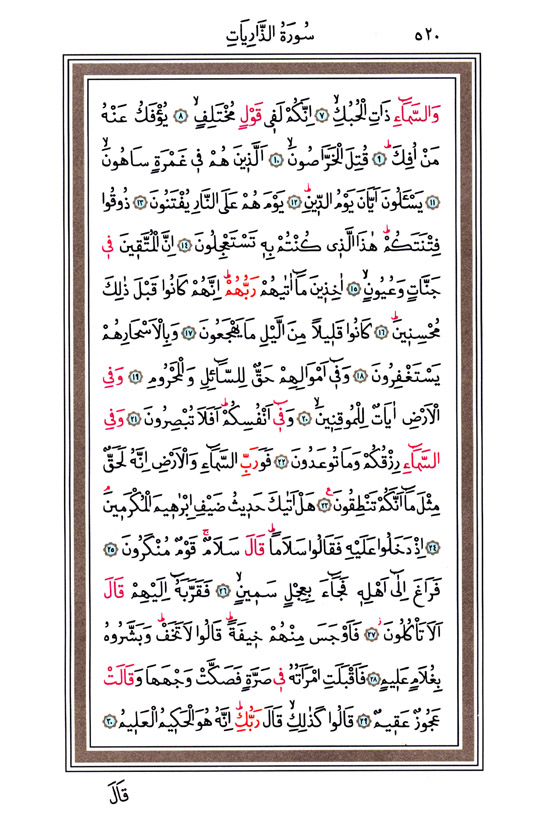 ٥٢٠ سُورَةُ الذَّارِيَاتِ
وَالسَّمَٓاءِ ذَاتِ الْحُبُكِۙ ﴿٧﴾ اِنَّكُمْ لَف۪ي قَوْلٍ مُخْتَلِفٍۙ ﴿٨﴾ يُؤْفَكُ عَنْهُ
مَنْ اُفِكَۜ ﴿٩﴾ قُتِلَ الْخَرَّاصُونَۙ ﴿١٠﴾ اَلَّذ۪ينَ هُمْ ف۪ي غَمْرَةٍ سَاهُونَۙ
﴿١١﴾ يَسْـَٔلُونَ اَيَّانَ يَوْمُ الدّ۪ينِۜ ﴿١٢﴾ يَوْمَ هُمْ عَلَى النَّارِ يُفْتَنُونَ ﴿١٣﴾ ذُوقُوا
فِتْنَتَكُمْۜ هٰذَا الَّذ۪ي كُنْتُمْ بِه۪ تَسْتَعْجِلُونَ ﴿١٤﴾ اِنَّ الْمُتَّق۪ينَ ف۪ي
جَنَّاتٍ وَعُيُونٍۙ ﴿١٥﴾ اٰخِذ۪ينَ مَٓا اٰتٰيهُمْ رَبُّهُمْۜ اِنَّهُمْ كَانُوا قَبْلَ ذٰلِكَ
مُحْسِن۪ينَۜ ﴿١٦﴾ كَانُوا قَل۪يلاً مِنَ الَّيْلِ مَا يَهْجَعُونَ ﴿١٧﴾ وَبِالْاَسْحَارِ هُمْ
يَسْتَغْفِرُونَ ﴿١٨﴾ وَف۪ٓي اَمْوَالِهِمْ حَقٌّ لِلسَّٓائِلِ وَالْمَحْرُومِ ﴿١٩﴾ وَفِي
الْاَرْضِ اٰيَاتٌ لِلْمُوقِن۪ينَۙ ﴿٢٠﴾ وَف۪ٓي اَنْفُسِكُمْۜ اَفَلَا تُبْصِرُونَ ﴿٢١﴾ وَفِي
السَّمَٓاءِ رِزْقُكُمْ وَمَا تُوعَدُونَ ﴿٢٢﴾ فَوَرَبِّ السَّمَٓاءِ وَالْاَرْضِ اِنَّهُ لَحَقٌّ
مِثْلَ مَٓا اَنَّكُمْ تَنْطِقُونَ۟ ﴿٢٣﴾ هَلْ اَتٰيكَ حَد۪يثُ ضَيْفِ اِبْرٰه۪يمَ الْمُكْرَم۪ينَۢ
﴿٢٤﴾ اِذْ دَخَلُوا عَلَيْهِ فَقَالُوا سَلَاماًۜ قَالَ سَلَامٌۚ قَوْمٌ مُنْكَرُونَ ﴿٢٥﴾
فَرَاغَ اِلٰٓى اَهْلِه۪ فَجَٓاءَ بِعِجْلٍ سَم۪ينٍۙ ﴿٢٦﴾ فَقَرَّبَهُٓ اِلَيْهِمْ قَالَ
اَلَا تَأْكُلُونَۘ ﴿٢٧﴾ فَاَوْجَسَ مِنْهُمْ خ۪يفَةًۜ قَالُوا لَا تَخَفْۜ وَبَشَّرُوهُ
بِغُلَامٍ عَل۪يمٍ ﴿٢٨﴾ فَاَقْبَلَتِ امْرَاَتُهُ ف۪ي صَرَّةٍ فَصَكَّتْ وَجْهَهَا وَقَالَتْ
عَجُوزٌ عَق۪يمٌ ﴿٢٩﴾ قَالُوا كَذٰلِكِۙ قَالَ رَبُّكِۜ اِنَّهُ هُوَ الْحَك۪يمُ الْعَل۪يمُ ﴿٣٠﴾
قَالَ